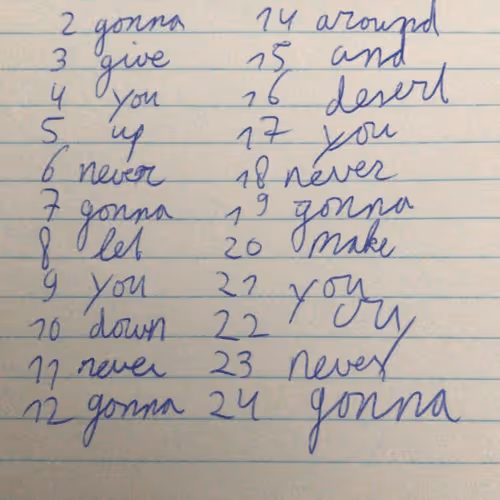 2 gonna 14 around
3 give 15 and
4 you 16 desert
5 up 17 you
6 never 18 never
7 gonna 19 gonna
8 let 20 make
9 you 21 you
10 down 22 cry
11 never 23 never
12 gonna 24 gonna